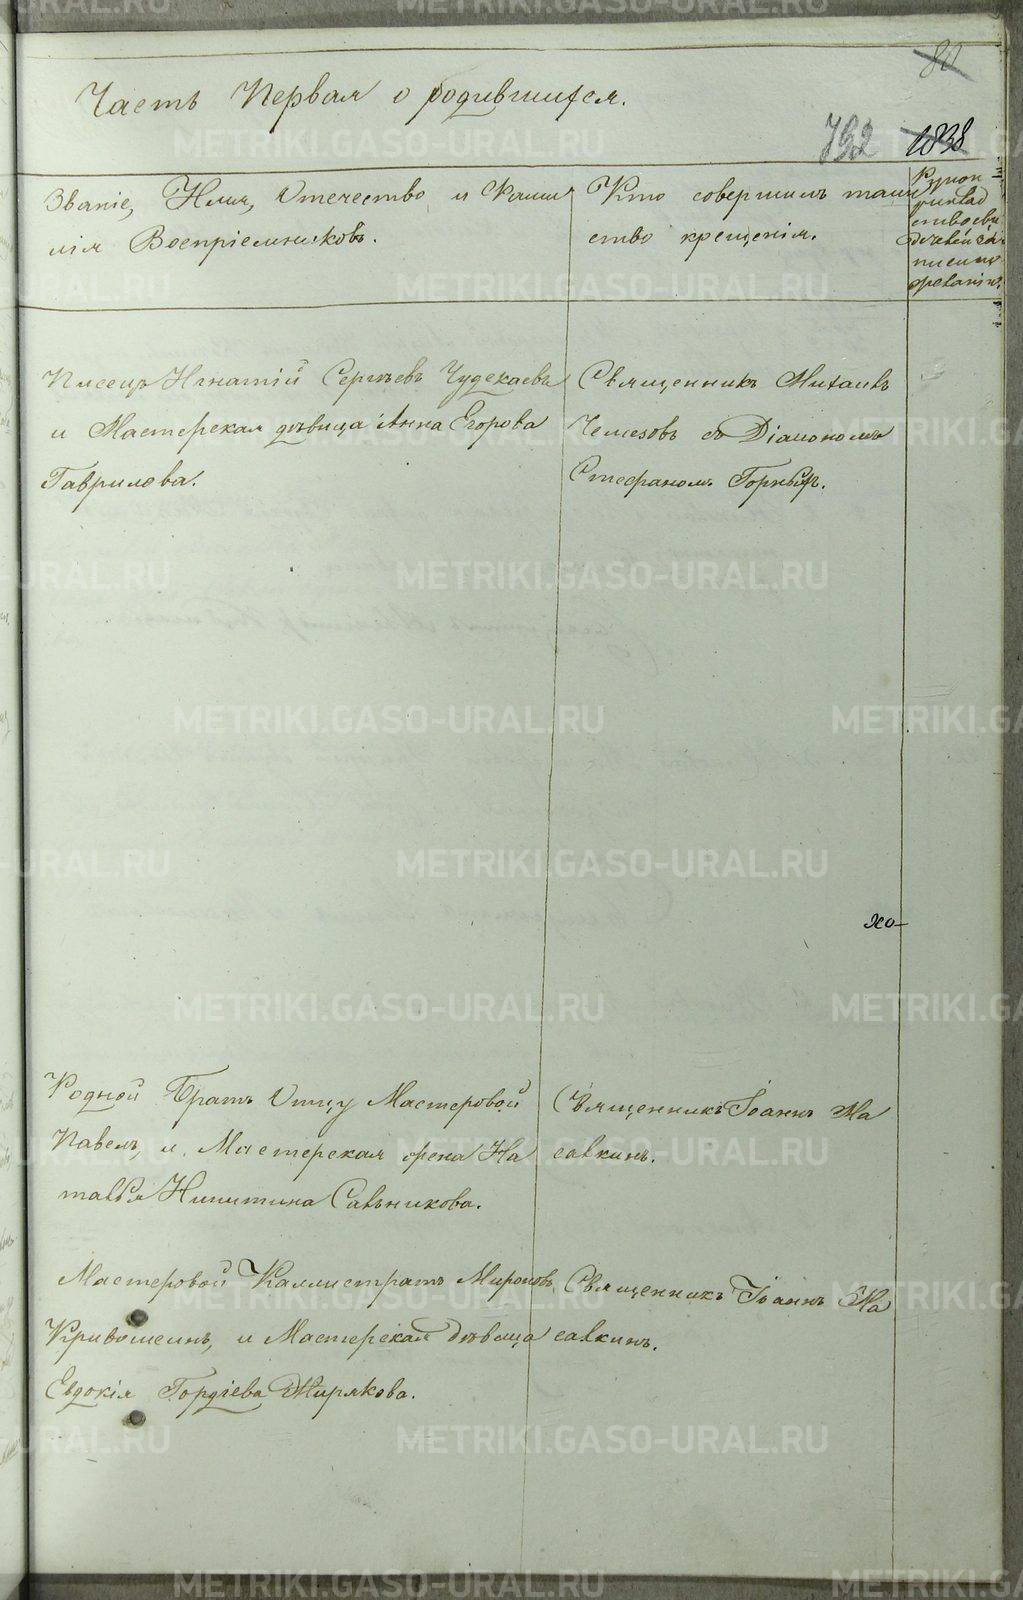 80
Часть Первая о родившихся.
792 1838
Званіе, Имя, Отечество и Фами
лія Воспріемниковъ.
Кто совершилъ таин
ство крещенія.
Рукоп
рикклад
ство сви
дѣтелей за
писи по
желанію.
Писецъ Игнатій Сергѣевъ Чудскаевъ
и Мастерская дѣвица Анна Егорова
Гаврилова.
Священникъ Михаилъ
Чемезовъ съ Діакономъ
Стефаномъ Горныхъ.
хо-
Родной Братъ Отцу Мастеровой
Павелъ, и Мастерская жена На
талья Никитина Савѣникова.
Священникъ Іоаннъ Ма
савкинъ.
Мастеровой Каллистратъ Мироновъ
Кривошеинъ, и Мастерская дѣвица
Евдокія Гордіева Жирякова.
Священникъ Іоаннъ Ма
савкинъ.
METRIKI.GASO-URAL.RU